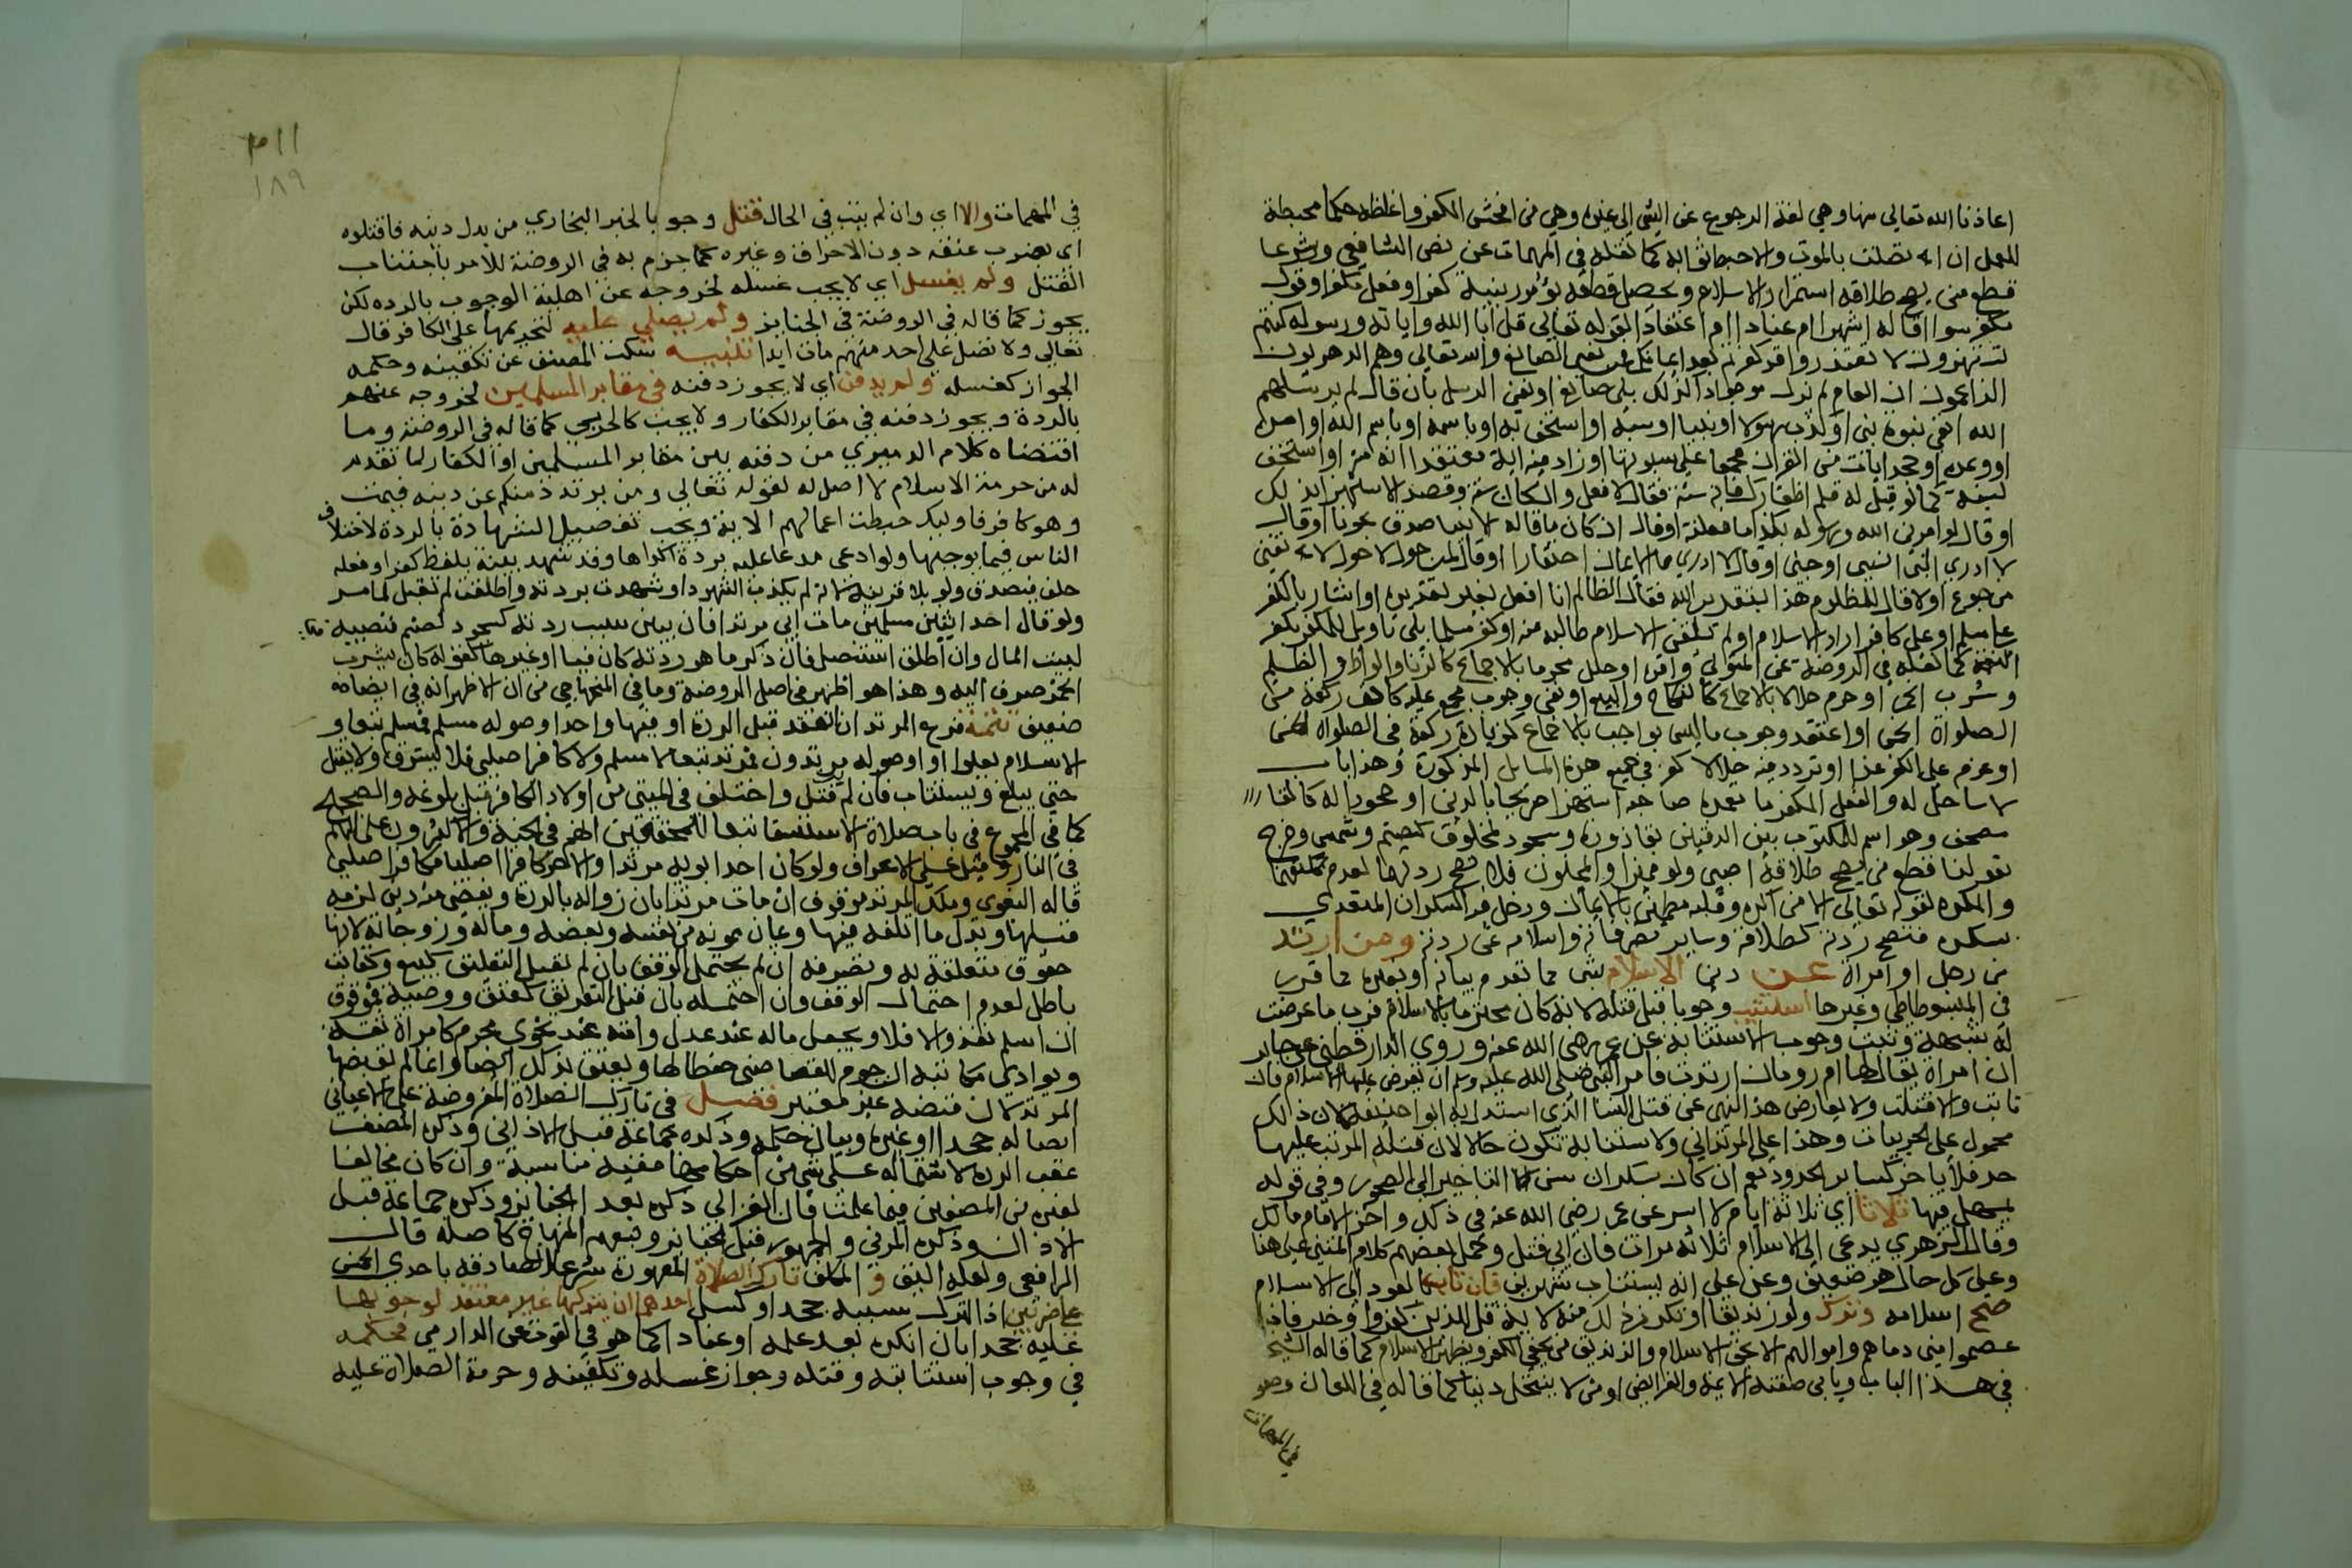 اعاذنا الله تعالى منها وهي لغة الرجوع عن الشي الى غيره وهي من افحش الكفر واغلظه حكما محبطة
للعمل ان اتصلت بالموت والا احبط ثوابه كما نقله في المهمات عن نص الشافعي وشرعا
قطع من يصح طلاقه استمرار الاسلام ويحصل قطعه بامور بنية كفر او فعل مكفر او قول
مكفر سوا اقاله استهزاء ام عنادا ام اعتقادا لقوله تعالى قل ابا الله واياته ورسوله كنتم
تستهزون لا تعتذروا قد كفرتم بعد ايمانكم فمن نفى الصانع وانه تعالى وهم الدهريون
الزاعمون ان العالم لم يزل موجودا كذلك بلا صانع او نفى الرسل بان قال لم يرسلهم
الله او نفى نبوة نبي او كذب رسولا او نبيا او سبه او استخف به او باسمه او باسم الله او امره
او وعده او جحد اية من القران مجمعا على ثبوتها او زاد فيه اية معتقدا انه منه او استخف
بسنة كما لو قيل له قلم اظفارك فانه سنة فقال لا افعل وان كان سنة وقصد الاستهزا بذلك
او قال لو امرني الله ورسوله بكذا ما فعلته او قال ان كان ما قاله الانبيا صدقا نجونا او قال
لا ادري النبي انسي او جني او قال لا ادري ما الايمان احتقارا او قال لمن حول لا حول لا تغني
من جوع او لو قال المظلوم هذا بتقدير الله فقال الظالم انا افعل بغير تقديره او اشار بالكفر
على مسلم او على كافر اراد الاسلام او لم يلقن الاسلام طالبه منه او كفر مسلما بلا تاويل للمكفر بكفر
النعمة كما نقله في الروضة عن المتولي واقره او حلل محرما بالاجماع كالزنا واللواط والظلم
وشرب الخمر او حرم حلالا بالاجماع كالنكاح والبيع او نفى وجوب مجمع عليه كان نفى ركعة من
الصلوات الخمس او اعتقد وجوب ما ليس بواجب بالاجماع كزيادة ركعة في الصلوات الخمس
او عزم على الكفر غدا او تردد فيه حالا كفر في جميع هذه المسايل المذكورة وهذا باب
لا ساحل له والفعل المكفر ما تعمده صاحبه استهزا صريحا بالدين او جحودا له كالقا
مصحف وهو اسم للمكتوب بين الدفتين بقاذورة وسجود لمخلوق كصنم وشمس وخرج
بقولنا قطع من يصح طلاقه الصبي ولو مميزا والمجنون فلا تصح ردتهما لعدم تكليفهما
والمكره لقوله تعالى الا من اكره وقلبه مطمئن بالايمان ودخل فيه السكران المتعدي
بسكره فتصح ردته كطلاقه وساير تصرفاته واسلامه عن ردته ومن ارتد
من رجل او امراة عن دين الاسلام بشي مما تقدم بيانه او بغيره مما قرر
في المبسوطات وغيرها استتيب وجوبا قبل قتله لانه كان محترما بالاسلام فربما عرضت
له شبهة وثبت وجوب الاستتابة عن عمر رضي الله عنه وروى الدارقطني عن جابر
ان امراة يقال لها ام رومان ارتدت فامر النبي صلى الله عليه وسلم ان يعرض عليها الاسلام فان
تابت والا قتلت ولا يعارض هذا النهي عن قتل النسا الذي استدل به ابو حنيفة لان ذلك
محمول على الحربيات وهذا على المرتدات والاستتابة تكون حالا لان قتله المرتب عليها
حد فلا يوخر كساير الحدود نعم ان كان سكران سن التاخير الى الصحو وفي قوله
يمهل فيها ثلاثا اي ثلاثة ايام لاثر عن عمر رضي الله عنه في ذلك واخذ الامام مالك
وقال الزهري يدعى الى الاسلام ثلاث مرات فان ابى قتل وحمل بعضهم كلام المتن على هذا
وعلى كل حال هو ضعيف وعن علي انه يستتاب شهرين فان تاب بالعود الى الاسلام
صح اسلامه وترك ولو زنديقا او تكرر ذلك منه لاية قل للذين كفروا وخبر فاذا
عصموا مني دماهم واموالهم الا بحق الاسلام والزنديق من يخفي الكفر ويظهر الاسلام كما قاله الشيخ
في هذا الباب وبابي صفة الايمة والفرايض او من لا ينتحل دينا كما قاله في اللعان وصو
في المهمات
١٨٩
في المهمات والا اي وان لم يتب في الحال قتل وجوبا لخبر البخاري من بدل دينه فاقتلوه
اى بضرب عنقه دون الاحراق وغيره كما جزم به في الروضة للامر باحسان
القتل ولم يغسل اي لا يجب غسله لخروجه عن اهلية الوجوب بالرده لكن
يجوز كما قاله في الروضة في الجنايز ولم يصلي عليه لتحريمها على الكافر قال
تعالى ولا تصل على احد منهم مات ابدا تنبيه سكت المصنف عن تكفينه وحكمه
الجواز كغسله ولم يدفن اي لا يجوز دفنه في مقابر المسلمين لخروجه عنهم
بالردة ويجوز دفنه في مقابر الكفار ولا يجب كالحربي كما قاله في الروضة وما
اقتضاه كلام الدميري من دفنه بين مقابر المسلمين والكفار لما تقدم
له من حرمة الاسلام لا اصل له لقوله تعالى ومن يرتدد منكم عن دينه فيمت
وهو كافر فاوليك حبطت اعمالهم الاية ويجب تفصيل الشهادة بالردة لاختلاف
الناس فيما يوجبها ولو ادعى مدعا عليه بردة اكراها وقد شهد بينة بلفظ كفر او فعله
حلف فيصدق ولو بلا قرينة لانه لم يكذب الشهود او شهدت بردته واطلقت لم تقبل لما مر
ولو قال احد ابنين مسلمين مات ابي مرتدا فان بين سبب ردته كسجود لصنم فنصيبه
لبيت المال وان اطلق استفصل فان ذكر ما هو ردة كان فيا او غيرها كقوله كان يشرب
الخمر صرف اليه وهذا هو الاظهر في اصل الروضة وما في المنهاج من ان الاظهر انه في ايضا
ضعيف تتمة فرع المرتد ان انعقد قبل الردة او فيها واحد اصوله مسلم فمسلم تبعا و
الاسلام يعلوا او اصوله مرتدون فمرتد تبعا لا مسلم ولا كافر اصلي فلا يسترق ولا يقتل
حتى يبلغ ويستتاب فان لم يتب قتل واختلف في الميت من اولاد الكافر قبل بلوغه والصحيح
كما في المجموع في باب صلاة الاستسقا تبعا للمحققين انهم في الجنة والاكثرون على انهم
في النار وقيل على الاعراف ولو كان احد ابويه مرتدا والاخر كافرا اصليا فكافر اصلي
قاله البغوي وملك المرتد موقوف ان مات مرتدا بان زواله بالردة ويقضى منه دين لزمه
قبلها وبدل ما اتلفه فيها ويمان ممونه من نفسه وبعضه وماله وزوجاته لانها
حقوق متعلقة به وتصرفه ان لم يحتمل الوقف بان لم يقبل التعليق كبيع وكتابة
باطل لعدم احتمال الوقف وان احتمله بان قبل التعليق كعتق ووصية فموقوف
ان اسلم نفذ والا فلا ويجعل ماله عند عدل وامته عند نحو محرم كامراة ثقة
ويودي مكاتبه النجوم للقاضي حفظا لها ويعتق بذلك ايضا وانما لم يقبضها
المرتد لان قبضه غير معتبر فصل في تارك الصلاة المفروضة على الاعيان
اصالة جحدا او غيره وبيان حكمه وذكره جماعة قبل الاذان وذكره المصنف
عقب الردة لاشتماله على شي من احكامها ففيه مناسبة وان كان مخالفا
لغيره من المصنفين فيما علمت فان الغزالي ذكره بعد الجنايز وذكره جماعة قبل
الاذان وذكره المزني والجمهور قبل الجنايز وتبعهم المنهاج كاصله قال
الرافعي ولعله اليق و المكلف تارك الصلاة المعهودة شرعا الصادقة باحدى الخمس
على ضربين اذ الترك سببه جحد او كسل احدهما ان يتركها غير معتقد لوجوبها
عليه جحدا بان انكره بعد علمه او عنادا كما هو في القوت عن الدارمي فحكمه
في وجوب استتابته وقتله وجواز غسله وتكفينه وحرمة الصلاة عليه